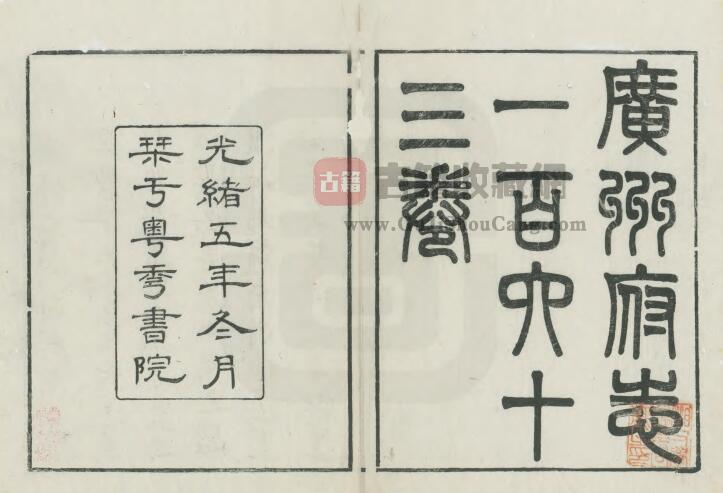 廣州府志
一百六十
三卷
光緒五年冬月
栞于粵秀書院
古籍
古籍收藏網
www.GujiShouCang.com